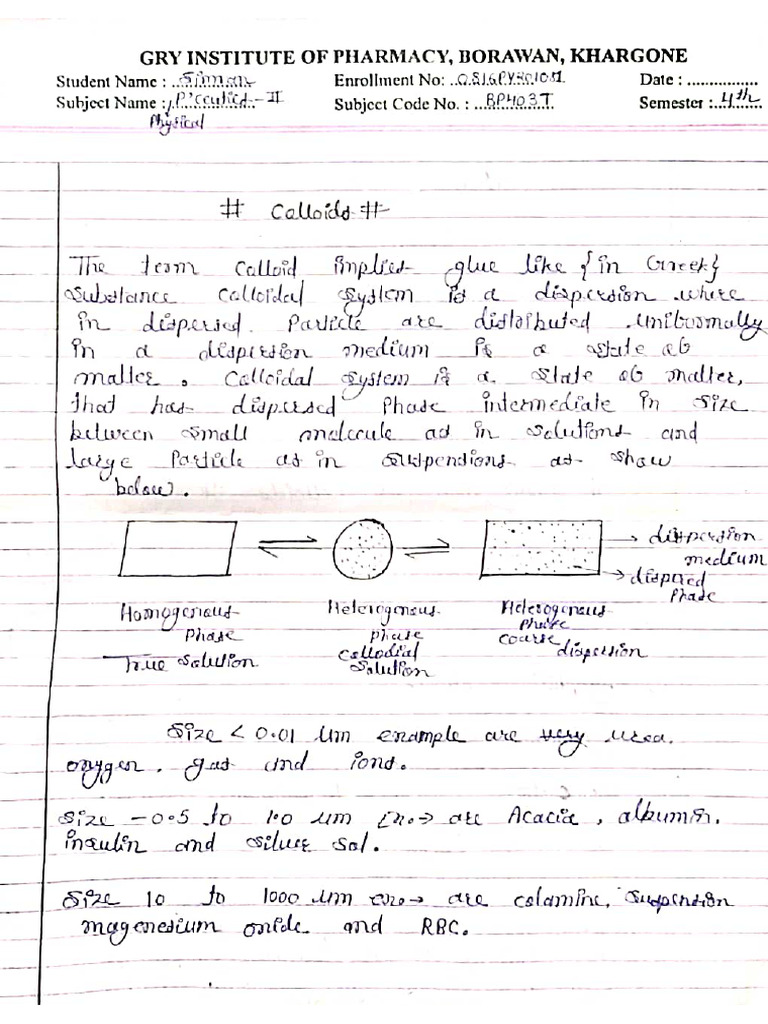 GRY INSTITUTE OF PHARMACY, BORAWAN, KHARGONE
Student Name : Simran Enrollment No: Date : ................
Subject Name : P'ceutics-II Subject Code No. : BP403T Semester : 4th
Physical
# Calloids #
The term calloid implies glue like {in Greek}
substance calloidal system is a dispersion where
in dispersed particle are distributed uniformally
in a dispersion medium is a state ob
matter. calloidal system is a state ob matter,
that has dispersed phase intermediate in size
between small molecule as in solutions and
large particle as in suspensions as show
below.
dispersion
medium
dispered
phase
Homogenous Heterogenous Heterogenous
phase phase phase
True solution collodial coarse dispersion
solution
Size < 0.01 um example are very urea.
oxygen, gas and ions.
Size - 0.5 to 1.0 um Ex.→ are Acacia, albumin,
insulin and silver sol.
Size 10 to 1000 um Ex.→ are calamine, suspension
magenesium oxide and RBC.